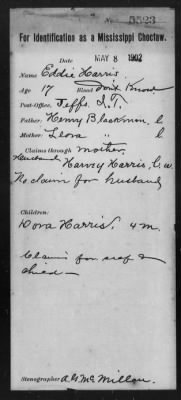 No. 5523
For Identification as a Mississippi Choctaw.
Date MAY 8 1902
Name Eddie Harris
Age 17 Blood Don't Know
Post-Office, Jeffs, I.T.
Father: Henry Blackmon
Mother: Flora "
Claims through mother
Husband Harvey Harris, C.W.
No claim for husband
Children:
Dora Harris, 4 m.
Claims for self &
child—
Stenographer A.G. McMillan.